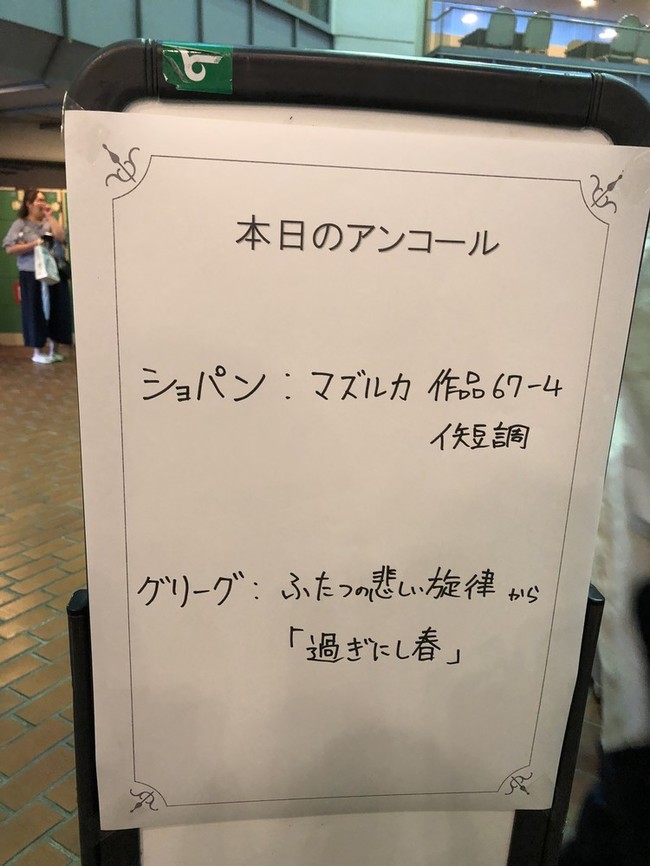 本日のアンコール
ショパン：マズルカ 作品67-4
イ短調
グリーグ：ふたつの悲しい旋律から
「過ぎにし春」